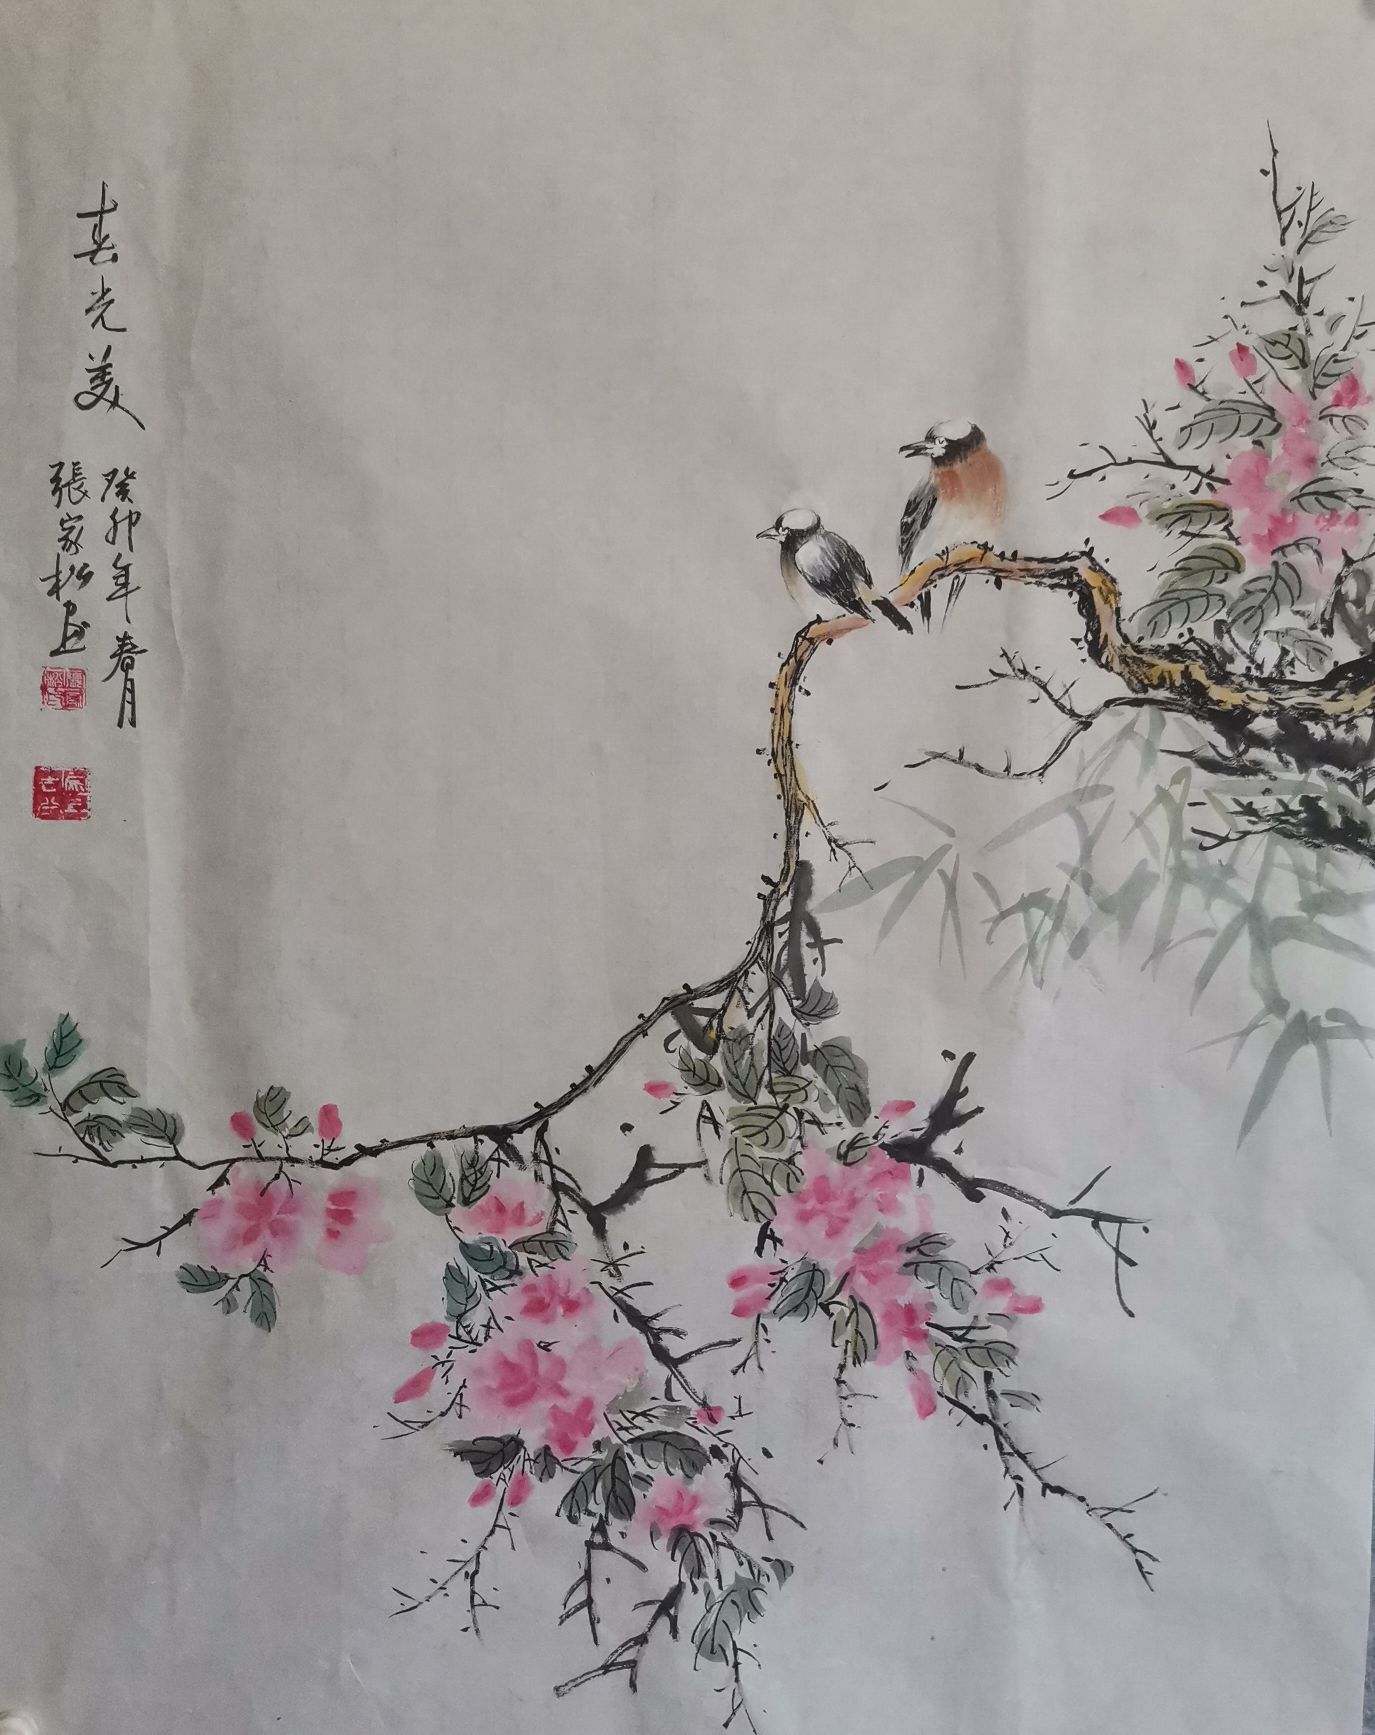 春光美
癸卯年春月
張家松画